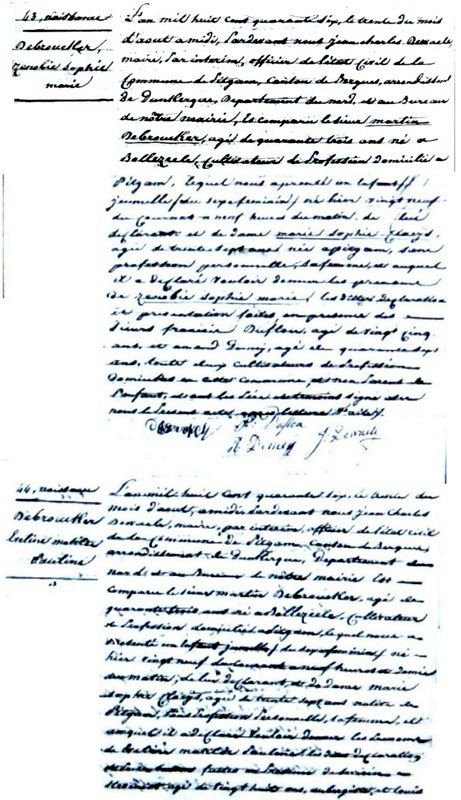 43, naissance
Debroucker,
Zénobie Sophie
marie
L'an mil huit cent quarante six, le trente du mois
d'août à midi, Pardevant nous jean Charles
maire, par interim, officier de l'état Civil de la
Commune de Pitgam, Canton de Bergues, arrondissement
de Dunkerque, Département du nord, et au Bureau
de nôtre mairie, est comparu le sieur martin
Debroucker, agé de quarante trois ans né à
Bollezeele, Cultivateur de Profession domicilié à
Pitgam, lequel nous a présenté un Enfant
jumelle (du sexe féminin) né hier vingt neuf
du Courant a neuf heures du matin, de lui
déclarant et de dame marie Sophie
agée de trente sept ans née à pitgam, sans
profession personnelle, sa femme, et auquel
il a déclaré vouloir donner les prénoms
de Zénobie Sophie marie, les dittes déclaration
et présentation faites, en présence des
sieurs agé de vingt cinq
ans, et amand agé de quarante sept
ans, tous deux cultivateurs de Profession
domiciliés en cette commune, et non Parent de
l'enfant, et ont les signé avec
nous le Présent acte, lecture faite
44, naissance
Debroucker
matilde
Pauline
L'an mil huit cent quarante six, le trente du
mois d'août, à midi Pardevant nous jean Charles
maire, par interim, officier de l'état civil
de la Commune de Pitgam, Canton de Bergues,
arrondissement de Dunkerque, Departement du
nord, et au Bureau de nôtre mairie est
comparu le sieur martin Debroucker, agé de
quarante trois ans né à Bollezeele, Cultivateur
de Profession domicilié à Pitgam, lequel nous a
présenté un Enfant jumelle (du sexe féminin) né
hier vingt neuf du Courant a neuf heures et demie
du matin, de lui déclarant, et de dame marie
Sophie agée de trente sept ans native de
Pitgam, sans Profession Personnelle, sa femme, et
auquel il a déclaré vouloir donner les Prénoms
de matilde Pauline, les dittes déclaration
et faites en Présence de
agé de vingt huit ans, et louis